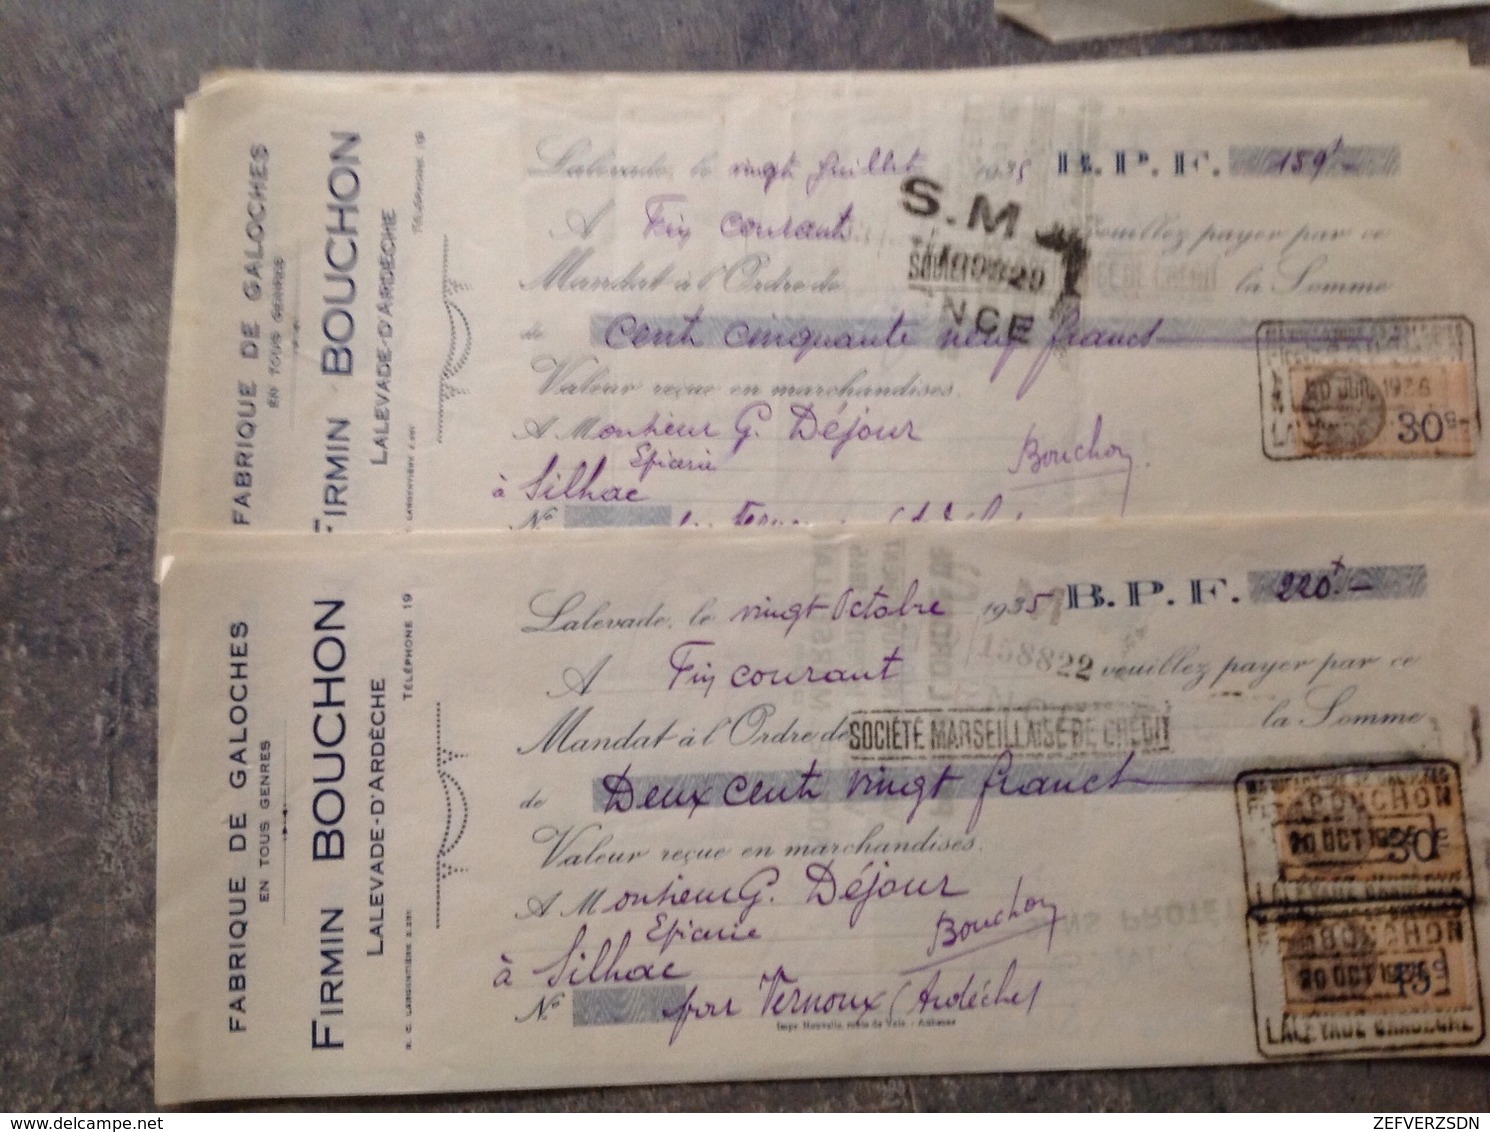 FABRIQUE DE GALOCHES
EN TOUS GENRES
FIRMIN BOUCHON
LALEVADE-D'ARDÈCHE
TÉLÉPHONE 19
Lalevade, le vingt Juillet 1935 B.P.F. 159f-
A Fin courant veuillez payer par ce
Mandat à l'Ordre de la Somme
S.M
NCE
de cent cinquante neuf franct
Valeur reçue en marchandises.
A Monsieur G. Déjour
Epicerie
Bouchon
à Silhac
30c
No
FABRIQUE DE GALOCHES
EN TOUS GENRES
FIRMIN BOUCHON
LALEVADE-D'ARDÈCHE
R. C. LARGENTIÈRE 2.291 TÉLÉPHONE 19
Lalevade, le vingt Octobre 1935 B.P.F. 220f-
A Fin courant 158822 veuillez payer par ce
Mandat à l'Ordre de SOCIÉTÉ MARSEILLAISE DE CRÉDIT la Somme
de Deux cent vingt franct
Valeur reçue en marchandises.
A Monsieur G. Déjour
Epicerie
Bouchon
à Silhac
No par Vernoux (Ardèche)
BOUCHON
20 OCT 1935
30c
BOUCHON
20 OCT
15c
ZEFVERZSDN